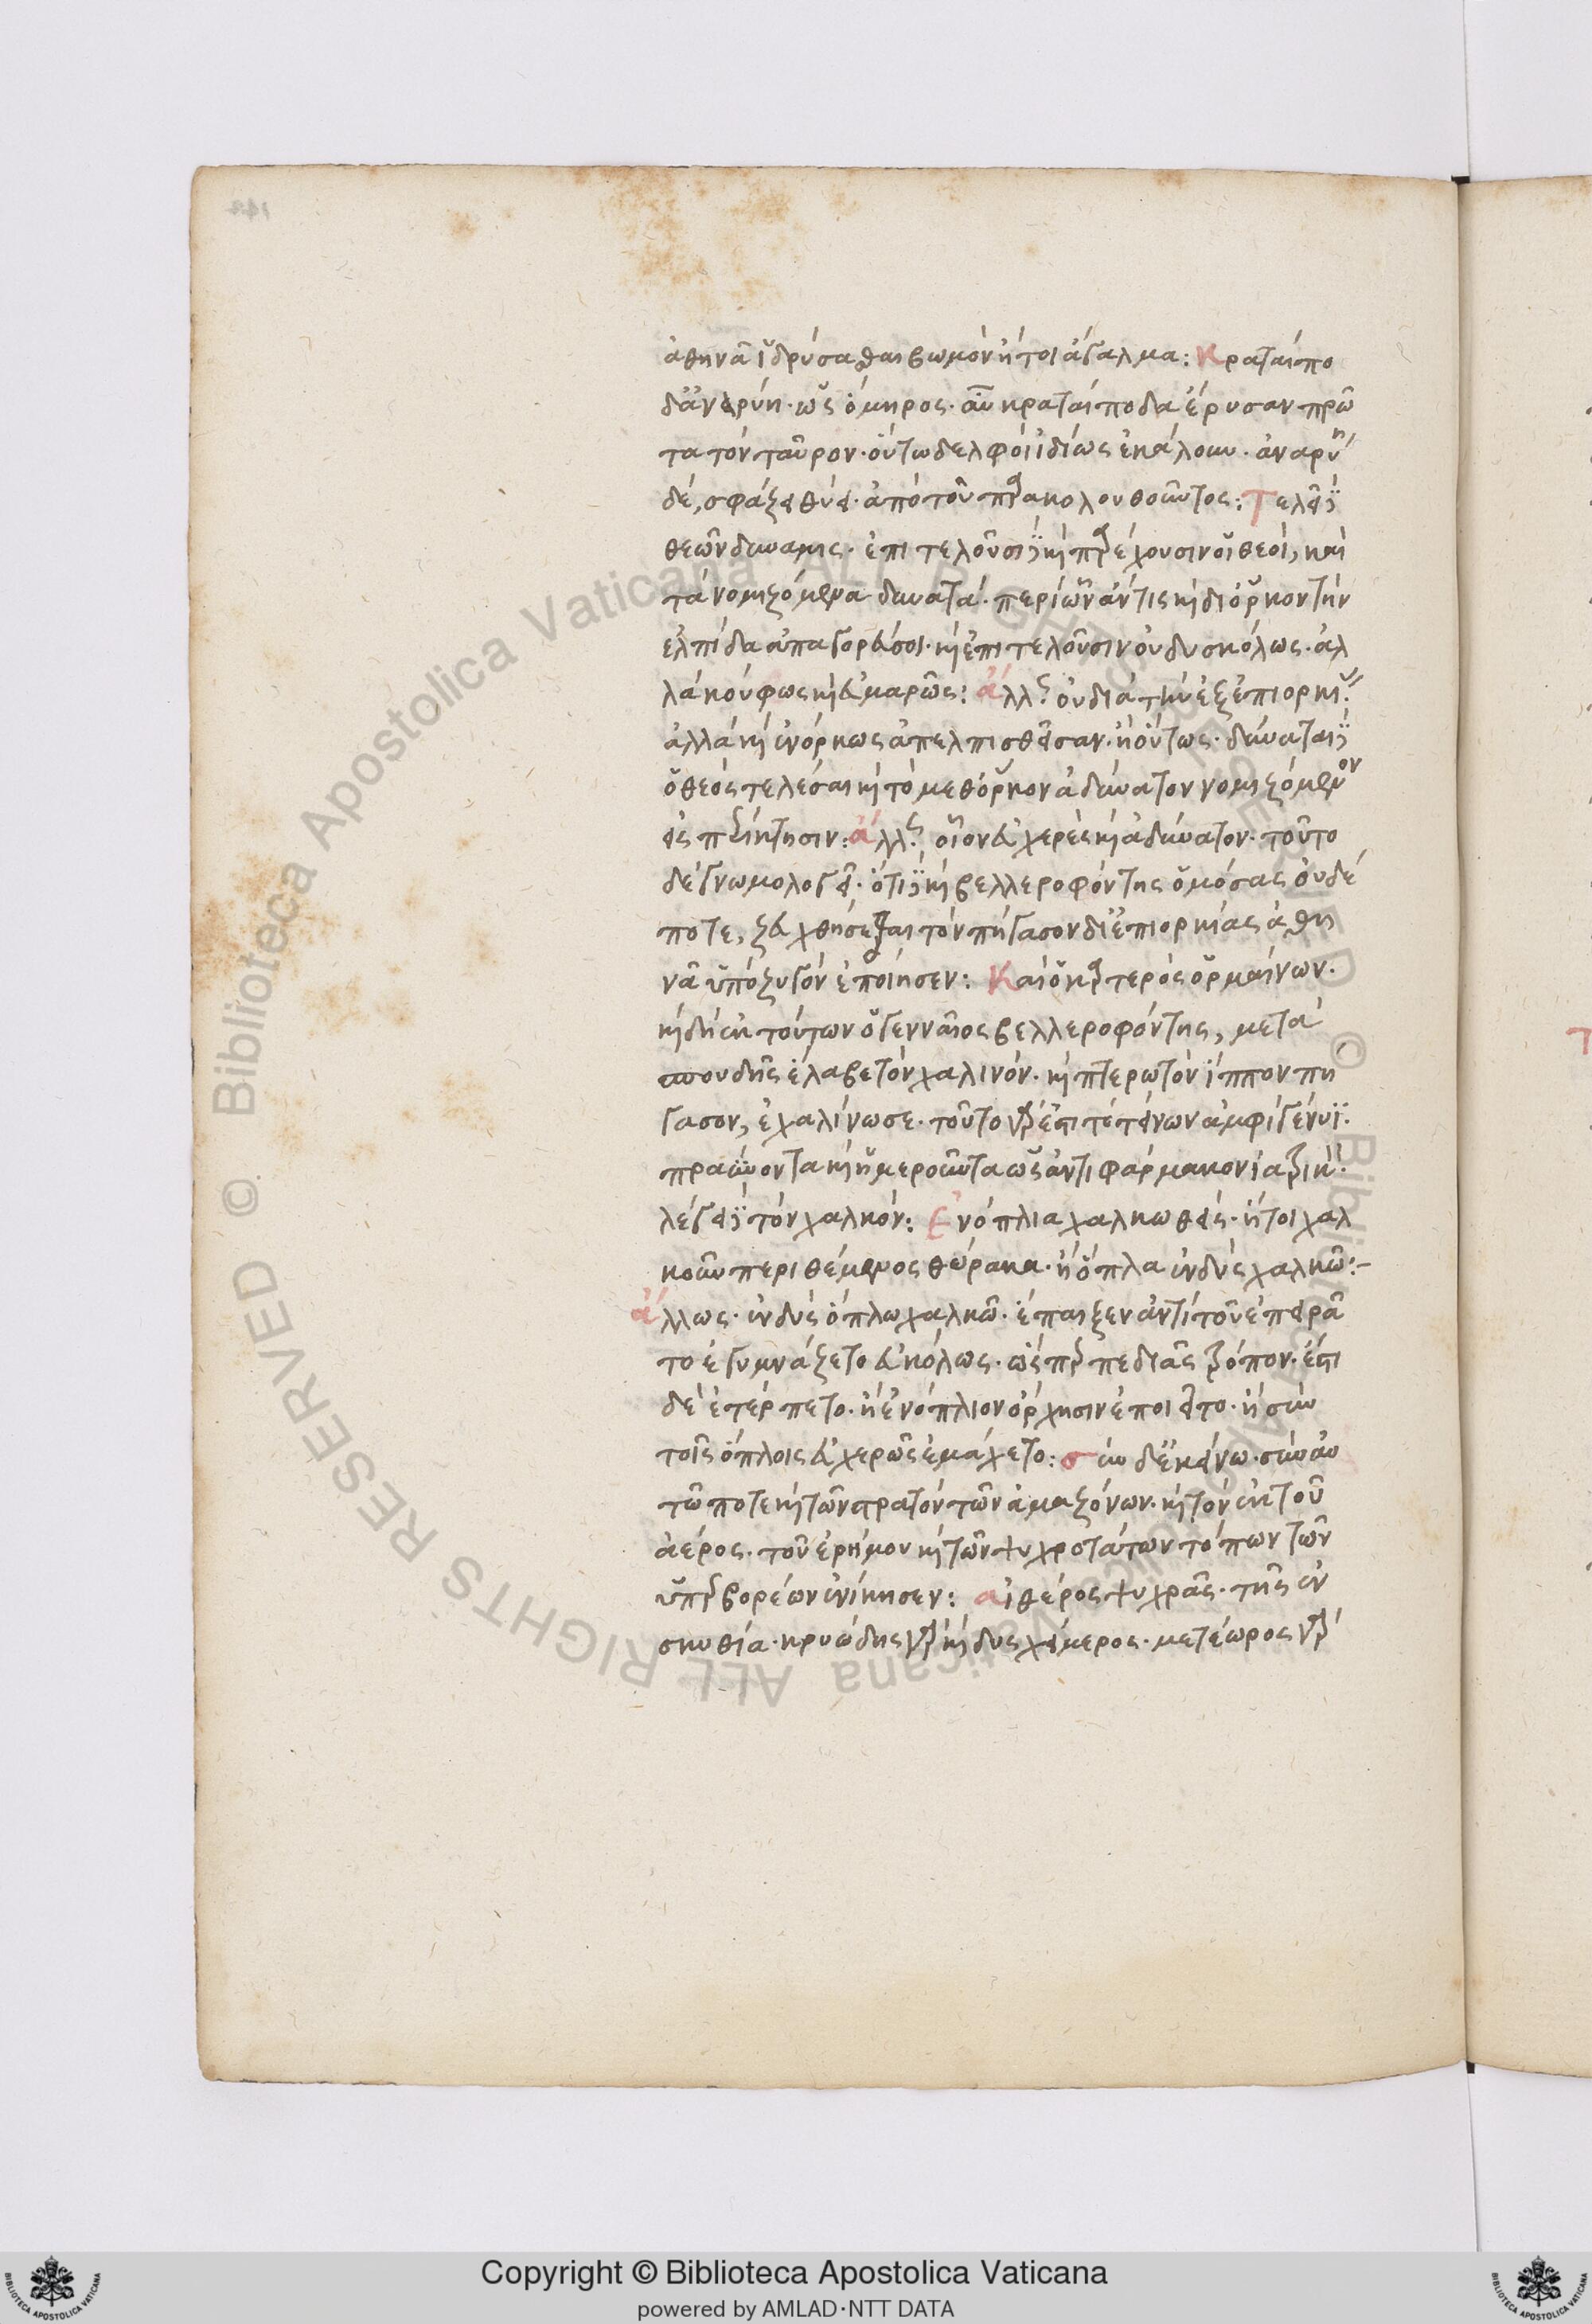 ἀθηνᾶ ἱδρύσασθαι βωμὸν ἤτοι ἄγαλμα: Κραταίπο
δ' ἀναρύη· ὡς ὅμηρος· αὖ κραταίποδα ἔρυσαν πρῶ
τα τὸν ταῦρον· οὕτω δελφοὶ ἰδίως ἐκάλουν· ἀναρύη
δὲ, σφάξει θύει· ἀπὸ τοῦ παρακολουθοῦντος: Τελεῖ
θεῶν δύναμις· ἐπιτελοῦσι καὶ παρέχουσιν οἱ θεοὶ, καὶ
τὰ νομιζόμενα δυνατά· περὶ ὧν ἄν τις καὶ δι' ὅρκον τὴν
ἐλπίδα ἀπαγορεύσοι· καὶ ἐπιτελοῦσιν οὐ δυσκόλως· ἀλ
λὰ κούφως καὶ εὐμαρῶς: ἄλλως οὐ διὰ τὴν ἐξ ἐπιορκίας
ἀλλὰ καὶ ἐνόρκως ἀπελπισθεῖσαν· ἢ οὕτως· δύναται
ὁ θεὸς τελέσαι καὶ τὸ μεθ' ὅρκον ἀδύνατον νομιζόμενον
εἰς ποίησιν: ἄλλως οἷον εὐχερὲς καὶ ἀδύνατον· τοῦτο
δὲ γνωμολογεῖ· ὅτι καὶ βελλεροφόντης ὀμόσας οὐδέ
ποτε, ζευχθήσεσθαι τὸν πήγασον δι' ἐπιορκίας ἀθη
νᾶ ὑποζυγὸν ἐποίησεν: Καὶ ὁ καρτερὸς ὁρμαίνων·
καὶ δὴ ἐκ τούτων ὁ γενναῖος βελλεροφόντης, μετὰ
σπουδῆς ἔλαβε τὸν χαλινόν· καὶ πτερωτὸν ἵππον πή
γασον, ἐχαλίνωσε· τοῦτο γάρ ἐστι τὸ τείνων ἀμφὶ γένυϊ·
πραΰνοντα καὶ ἡμεροῦντα ὡς ἀντιφάρμακον ἰατρικὸν
λέγει τὸν χαλκόν: Ἐνόπλια χαλκωθείς· ἤτοι χαλ
κοῦν περιθέμενος θώρακα· ἢ ὅπλα ἐνδὺς χαλκῶ:-
ἄλλως· ἐνδὺς ὅπλω χαλκῶ· ἔπαιξεν ἀντὶ τοῦ ἐπειρᾶ
το ἐγυμνάζετο εὐκόλως· ὡς περ πεδιᾶς τρόπον· ἔτι
δὲ ἐτέρπετο· ἢ ἐνόπλιον ὄρχησιν ἐποιεῖτο· ἢ σὺν
τοῖς ὅπλοις εὐχερῶς ἐμάχετο: σὺν δ' ἐκείνω· σὺν αὐ
τῶ ποτε καὶ τῶν στρατὸν τῶν ἀμαζόνων· καὶ τὸν ἐκ τοῦ
ἀέρος· τοῦ ἐρήμου καὶ τῶν ψυχροτάτων τόπων τῶν
ὑπερβορέων ἐνίκησεν: αἰθέρος ψυχρᾶς· τῆς ἐν
σκυθία· κρυώδης γὰρ καὶ δυσχείμερος· μετέωρος γὰρ